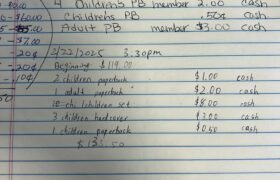 4 Childrens PB member 2.00 cash
Childrens PB .50¢ cash
Adult PB member $3.00 cash
$7.00
20¢
20¢
10¢
3/22/2025 3:30pm
Beginning $119.00
2 children paperback $1.00 cash
1 adult paperback $2.00 cash
10-chi children set $8.00 cash
3 children hardcover $3.00 cash
1 children paperback $0.50 cash
$133.50